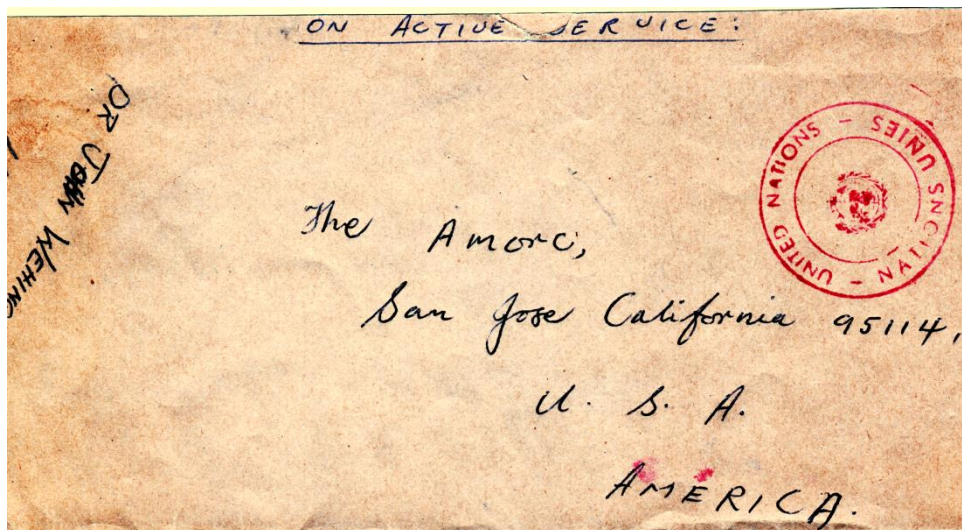 ON ACTIVE SERVICE:
DR JOHN WEHING
UNITED NATIONS – NATIONS UNIES –
The Amorc,
San Jose California 95114,
U. S. A.
AMERICA.